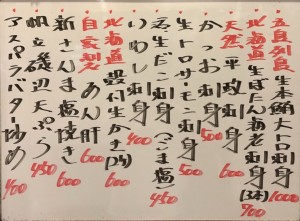 五島列島 生本鮪大トロ刺身 1000
北海道 生ぼたん海老刺身(3本) 700
天然 平政刺身 600
かつお刺身 500
生トロサーモン刺身 500
〆生ニシン刺身(ごま塩) 450
いわし刺身 400
北海道 殻付生かき(1ヶ)
自家製 あん肝 600
新さんま塩焼き 600
帆立磯辺天ぷら 450
アスパラバター炒め 400